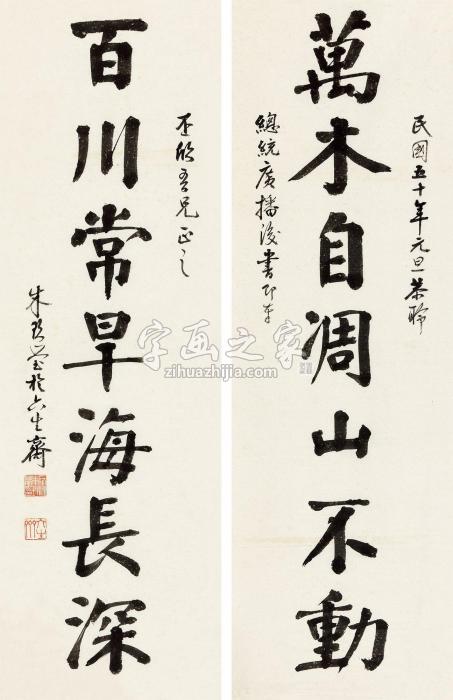 民國五十年元旦恭聆
萬木自凋山不動
總統廣播後書即奉
丕欣吾兄正之
百川常旱海長深
朱玖瑩於六生齋
字画之家
zihuazhijia.com